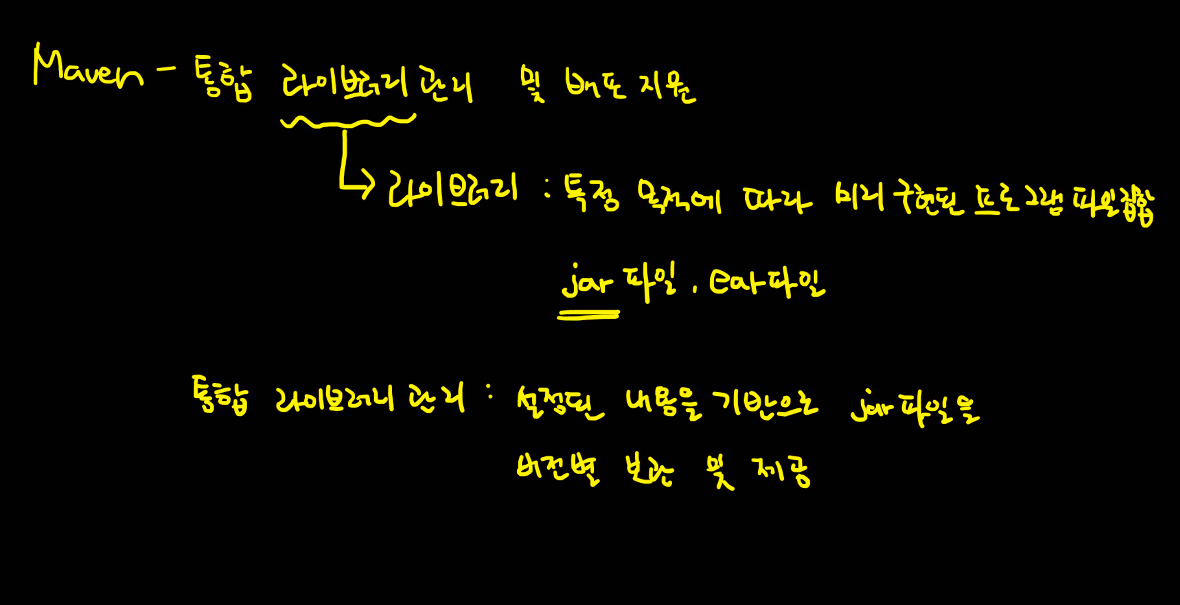 Maven - 통합 라이브러리 관리 및 배포 지원
라이브러리 : 특정 목적에 따라 미리 구현된 프로그램 파일집합
jar 파일, ear파일
통합 라이브러리 관리 : 설정된 내용을 기반으로 jar 파일을
버전별 보관 및 제공